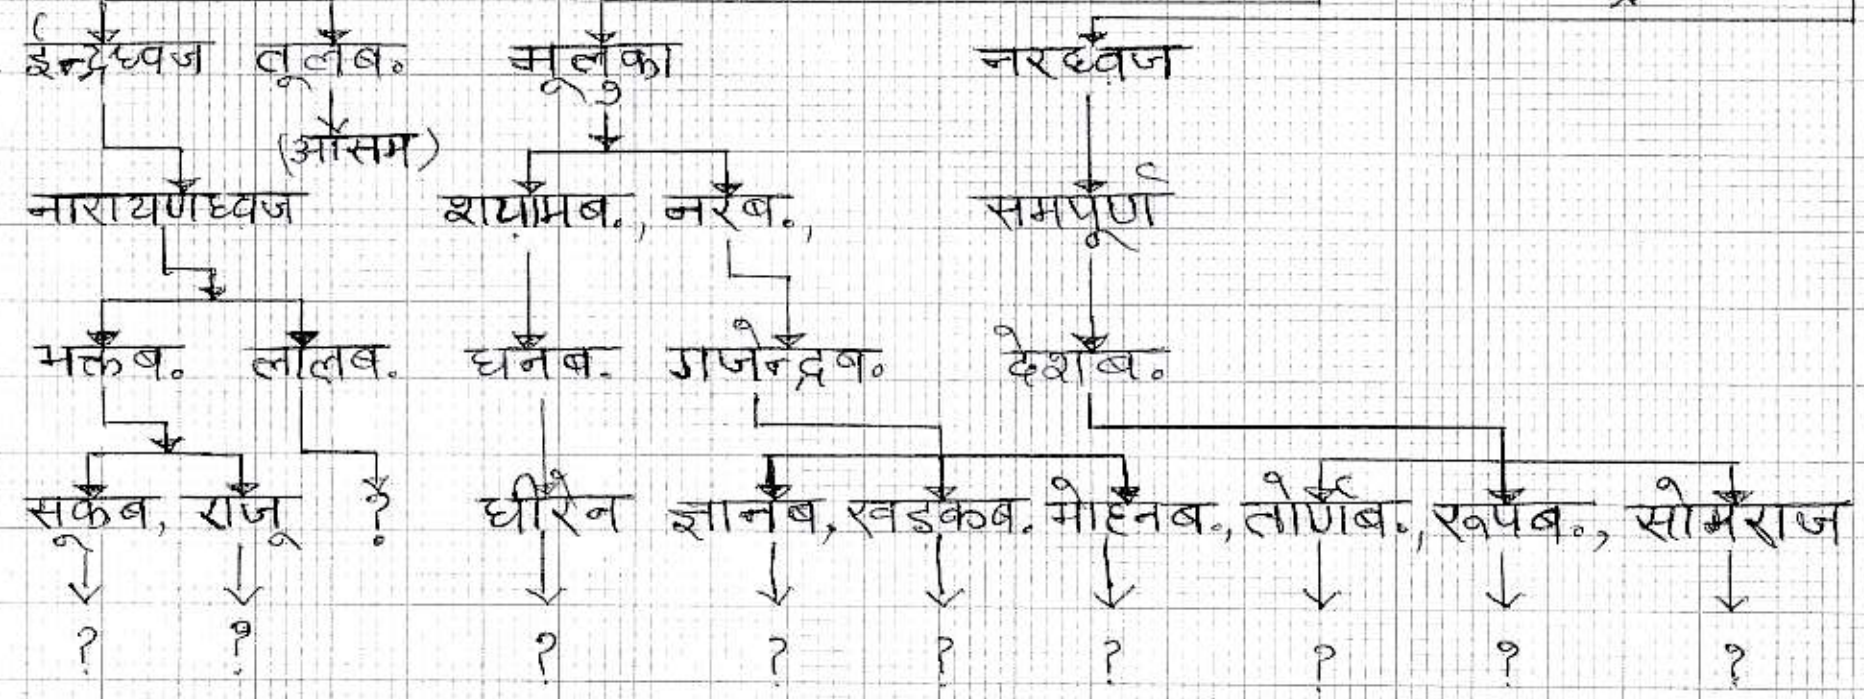 ईन्द्रध्वज तूलब. मूलुका नरध्वज
(आसम)
नारायणध्वज शयामब., नरब., समर्पूण
भक्तब. लालब. धनब. गजेन्द्रब. देशब.
सूकब, राजू ? धीरेन ज्ञानब, खड्कब. मोहनब., तोर्णब., रूपब., सोमराज
? ? ? ? ? ? ? ? ?